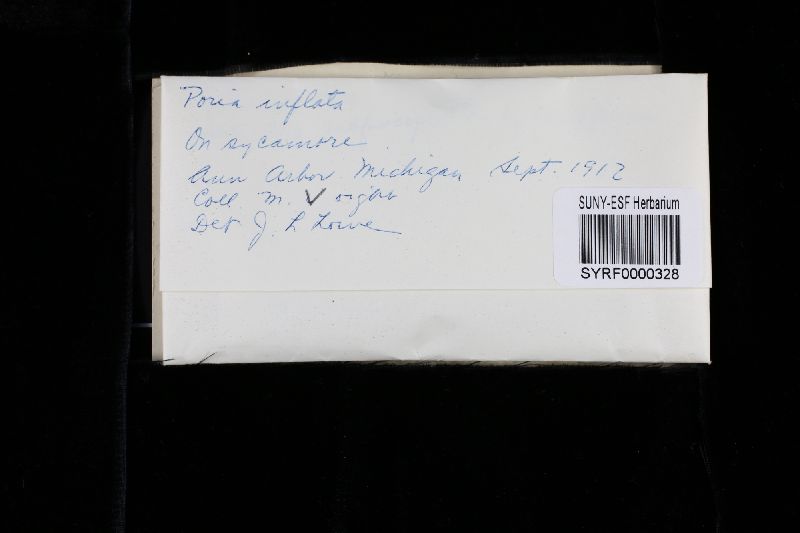 Poria inflata
On sycamore
Ann Arbor Michigan Sept. 1912
Coll. M.
Det J. L Lowe
SUNY-ESF Herbarium
SYRF0000328